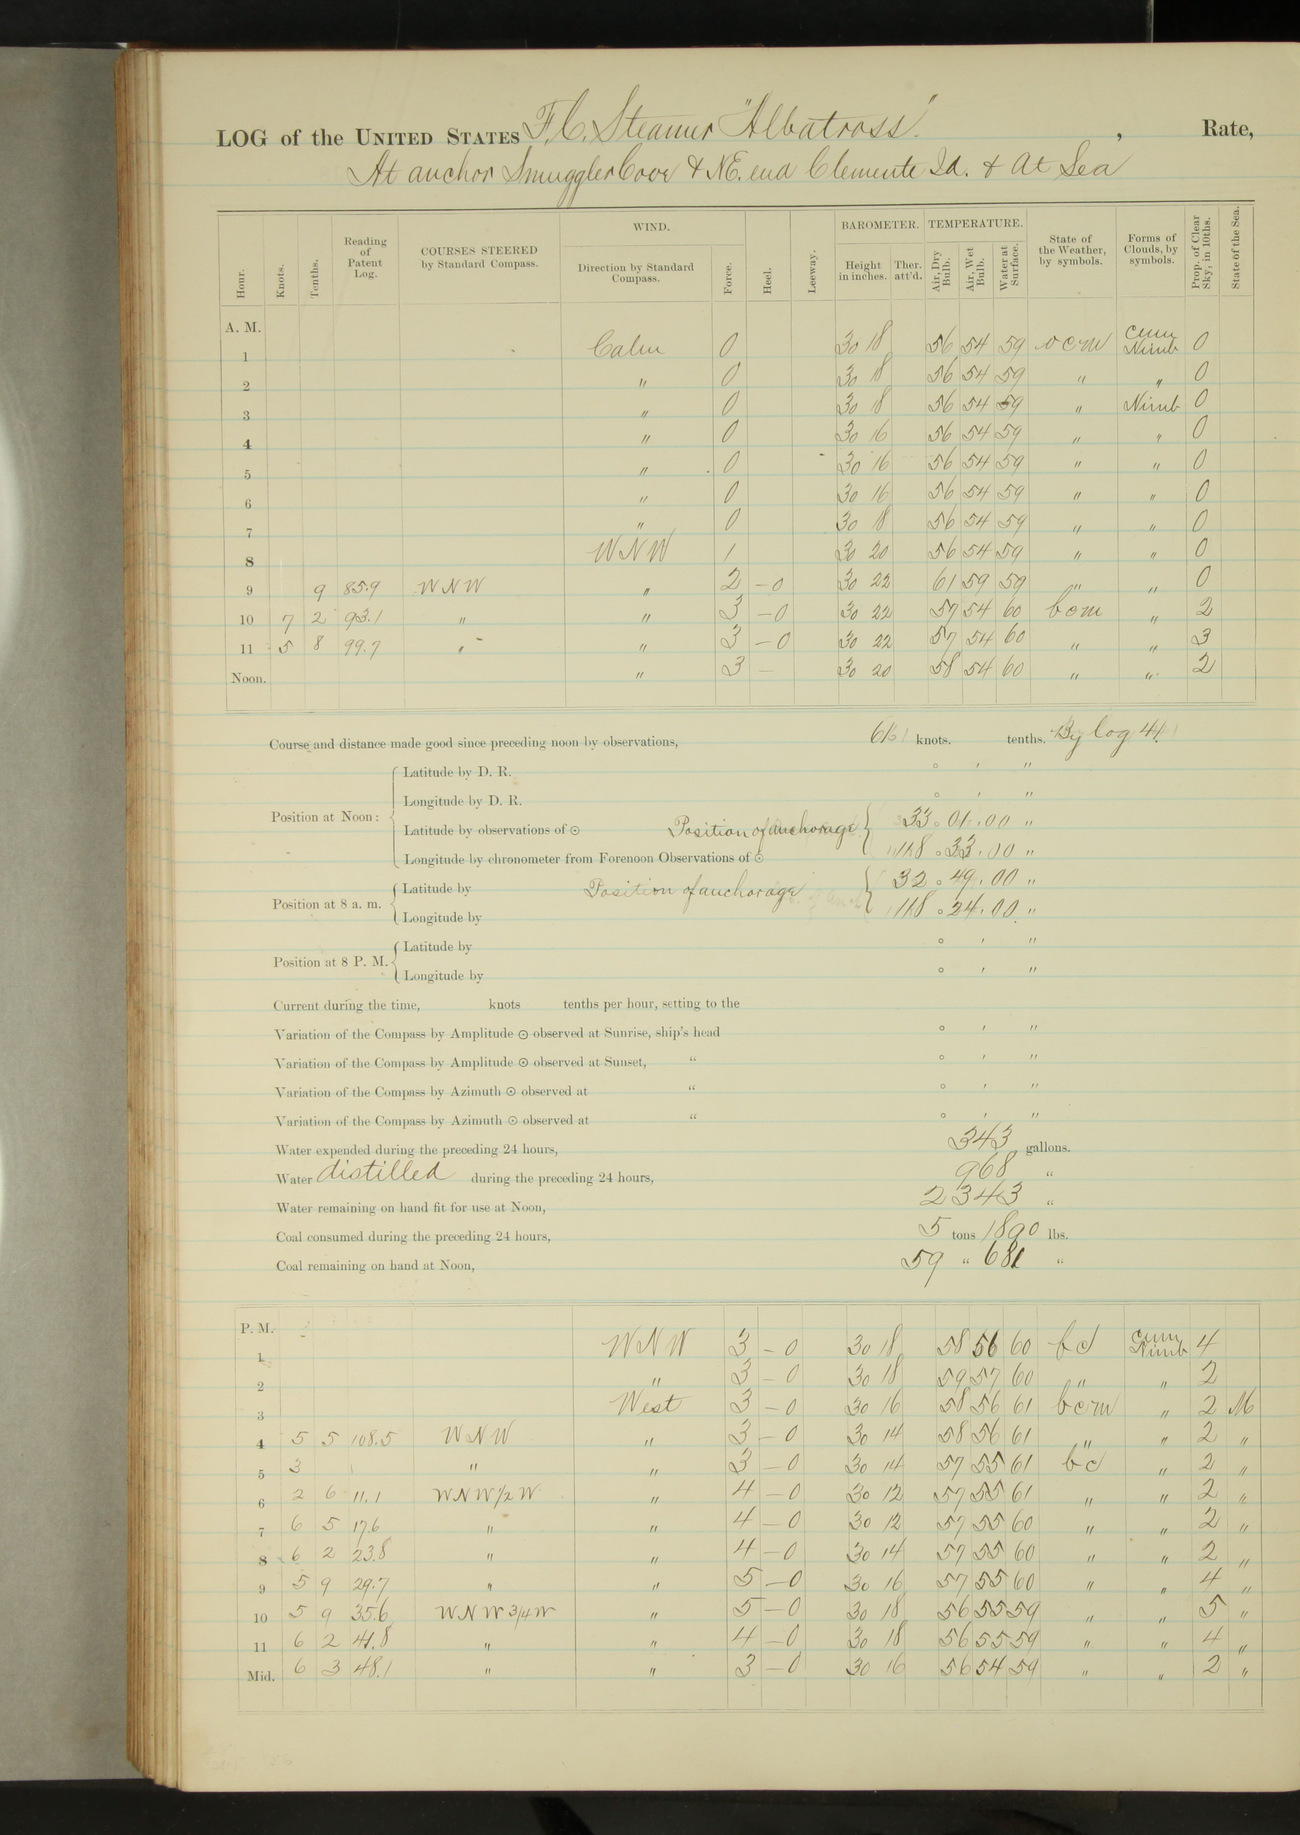 LOG of the UNITED STATES F.C. Steamer "Albatross." , Rate,
At anchor Smuggler Cove & NE. end Clemente Id. & At Sea
Hour. Knots. Tenths. Reading of Patent Log. COURSES STEERED by Standard Compass. WIND. Direction by Standard Compass. Force. Heel. Leeway. BAROMETER. Height in inches. Ther. att'd. TEMPERATURE. Air, Dry Bulb. Air, Wet Bulb. Water at Surface. State of the Weather, by symbols. Forms of Clouds, by symbols. Prop. of Clear Sky, in 10ths. State of the Sea.
A. M.
1 Calm 0 30 18 56 54 59 ocm Cum Nimb 0
2 " 0 30 18 56 54 59 " " 0
3 " 0 30 18 56 54 59 " Nimb 0
4 " 0 30 16 56 54 59 " " 0
5 " 0 30 16 56 54 59 " " 0
6 " 0 30 16 56 54 59 " " 0
7 " 0 30 18 56 54 59 " " 0
8 WNW 1 30 20 56 54 59 " " 0
9 9 85.9 WNW " 2 -0 30 22 61 59 59 " " 0
10 7 2 93.1 " " 3 -0 30 22 57 54 60 bcm " 2
11 5 8 99.7 " " 3 -0 30 22 57 54 60 " " 3
Noon. " 3 - 30 20 58 54 60 " " 2
Course and distance made good since preceding noon by observations, knots. tenths. By log 41
Position at Noon:
Latitude by D. R. ° ' "
Longitude by D. R. ° ' "
Latitude by observations of ⊙ Position of anchorage 33 ° 01 ' 00 "
Longitude by chronometer from Forenoon Observations of ⊙ 118 ° 33 ' 00 "
Position at 8 a. m.
Latitude by Position of anchorage 32 ° 49 ' 00 "
Longitude by 118 ° 24 ' 00 "
Position at 8 P. M.
Latitude by ° ' "
Longitude by ° ' "
Current during the time, knots tenths per hour, setting to the
Variation of the Compass by Amplitude ⊙ observed at Sunrise, ship's head ° ' "
Variation of the Compass by Amplitude ⊙ observed at Sunset, " ° ' "
Variation of the Compass by Azimuth ⊙ observed at " ° ' "
Variation of the Compass by Azimuth ⊙ observed at " ° ' "
Water expended during the preceding 24 hours, 343 gallons.
Water distilled during the preceding 24 hours, 968 "
Water remaining on hand fit for use at Noon, 2343 "
Coal consumed during the preceding 24 hours, 5 tons 1890 lbs.
Coal remaining on hand at Noon, 59 " 681 "
P. M.
1 WNW 3 -0 30 18 58 56 60 bc Cum Nimb 4
2 " 3 -0 30 18 59 57 60 " " 2
3 West 3 -0 30 16 58 56 61 bcm " 2 M
4 5 5 108.5 WNW " 3 -0 30 14 58 56 61 " " 2 "
5 3 " " 3 -0 30 14 57 55 61 bc " 2 "
6 2 6 11.1 WNW 1/2 W " 4 -0 30 12 57 55 61 " " 2 "
7 6 5 17.6 " " 4 -0 30 12 57 55 60 " " 2 "
8 6 2 23.8 " " 4 -0 30 14 57 55 60 " " 2 "
9 5 9 29.7 " " 5 -0 30 16 57 55 60 " " 4 "
10 5 9 35.6 WNW 3/4 W " 5 -0 30 18 56 55 59 " " 5 "
11 6 2 41.8 " " 4 -0 30 18 56 55 59 " " 4 "
Mid. 6 3 48.1 " " 3 -0 30 16 56 54 59 " " 2 "